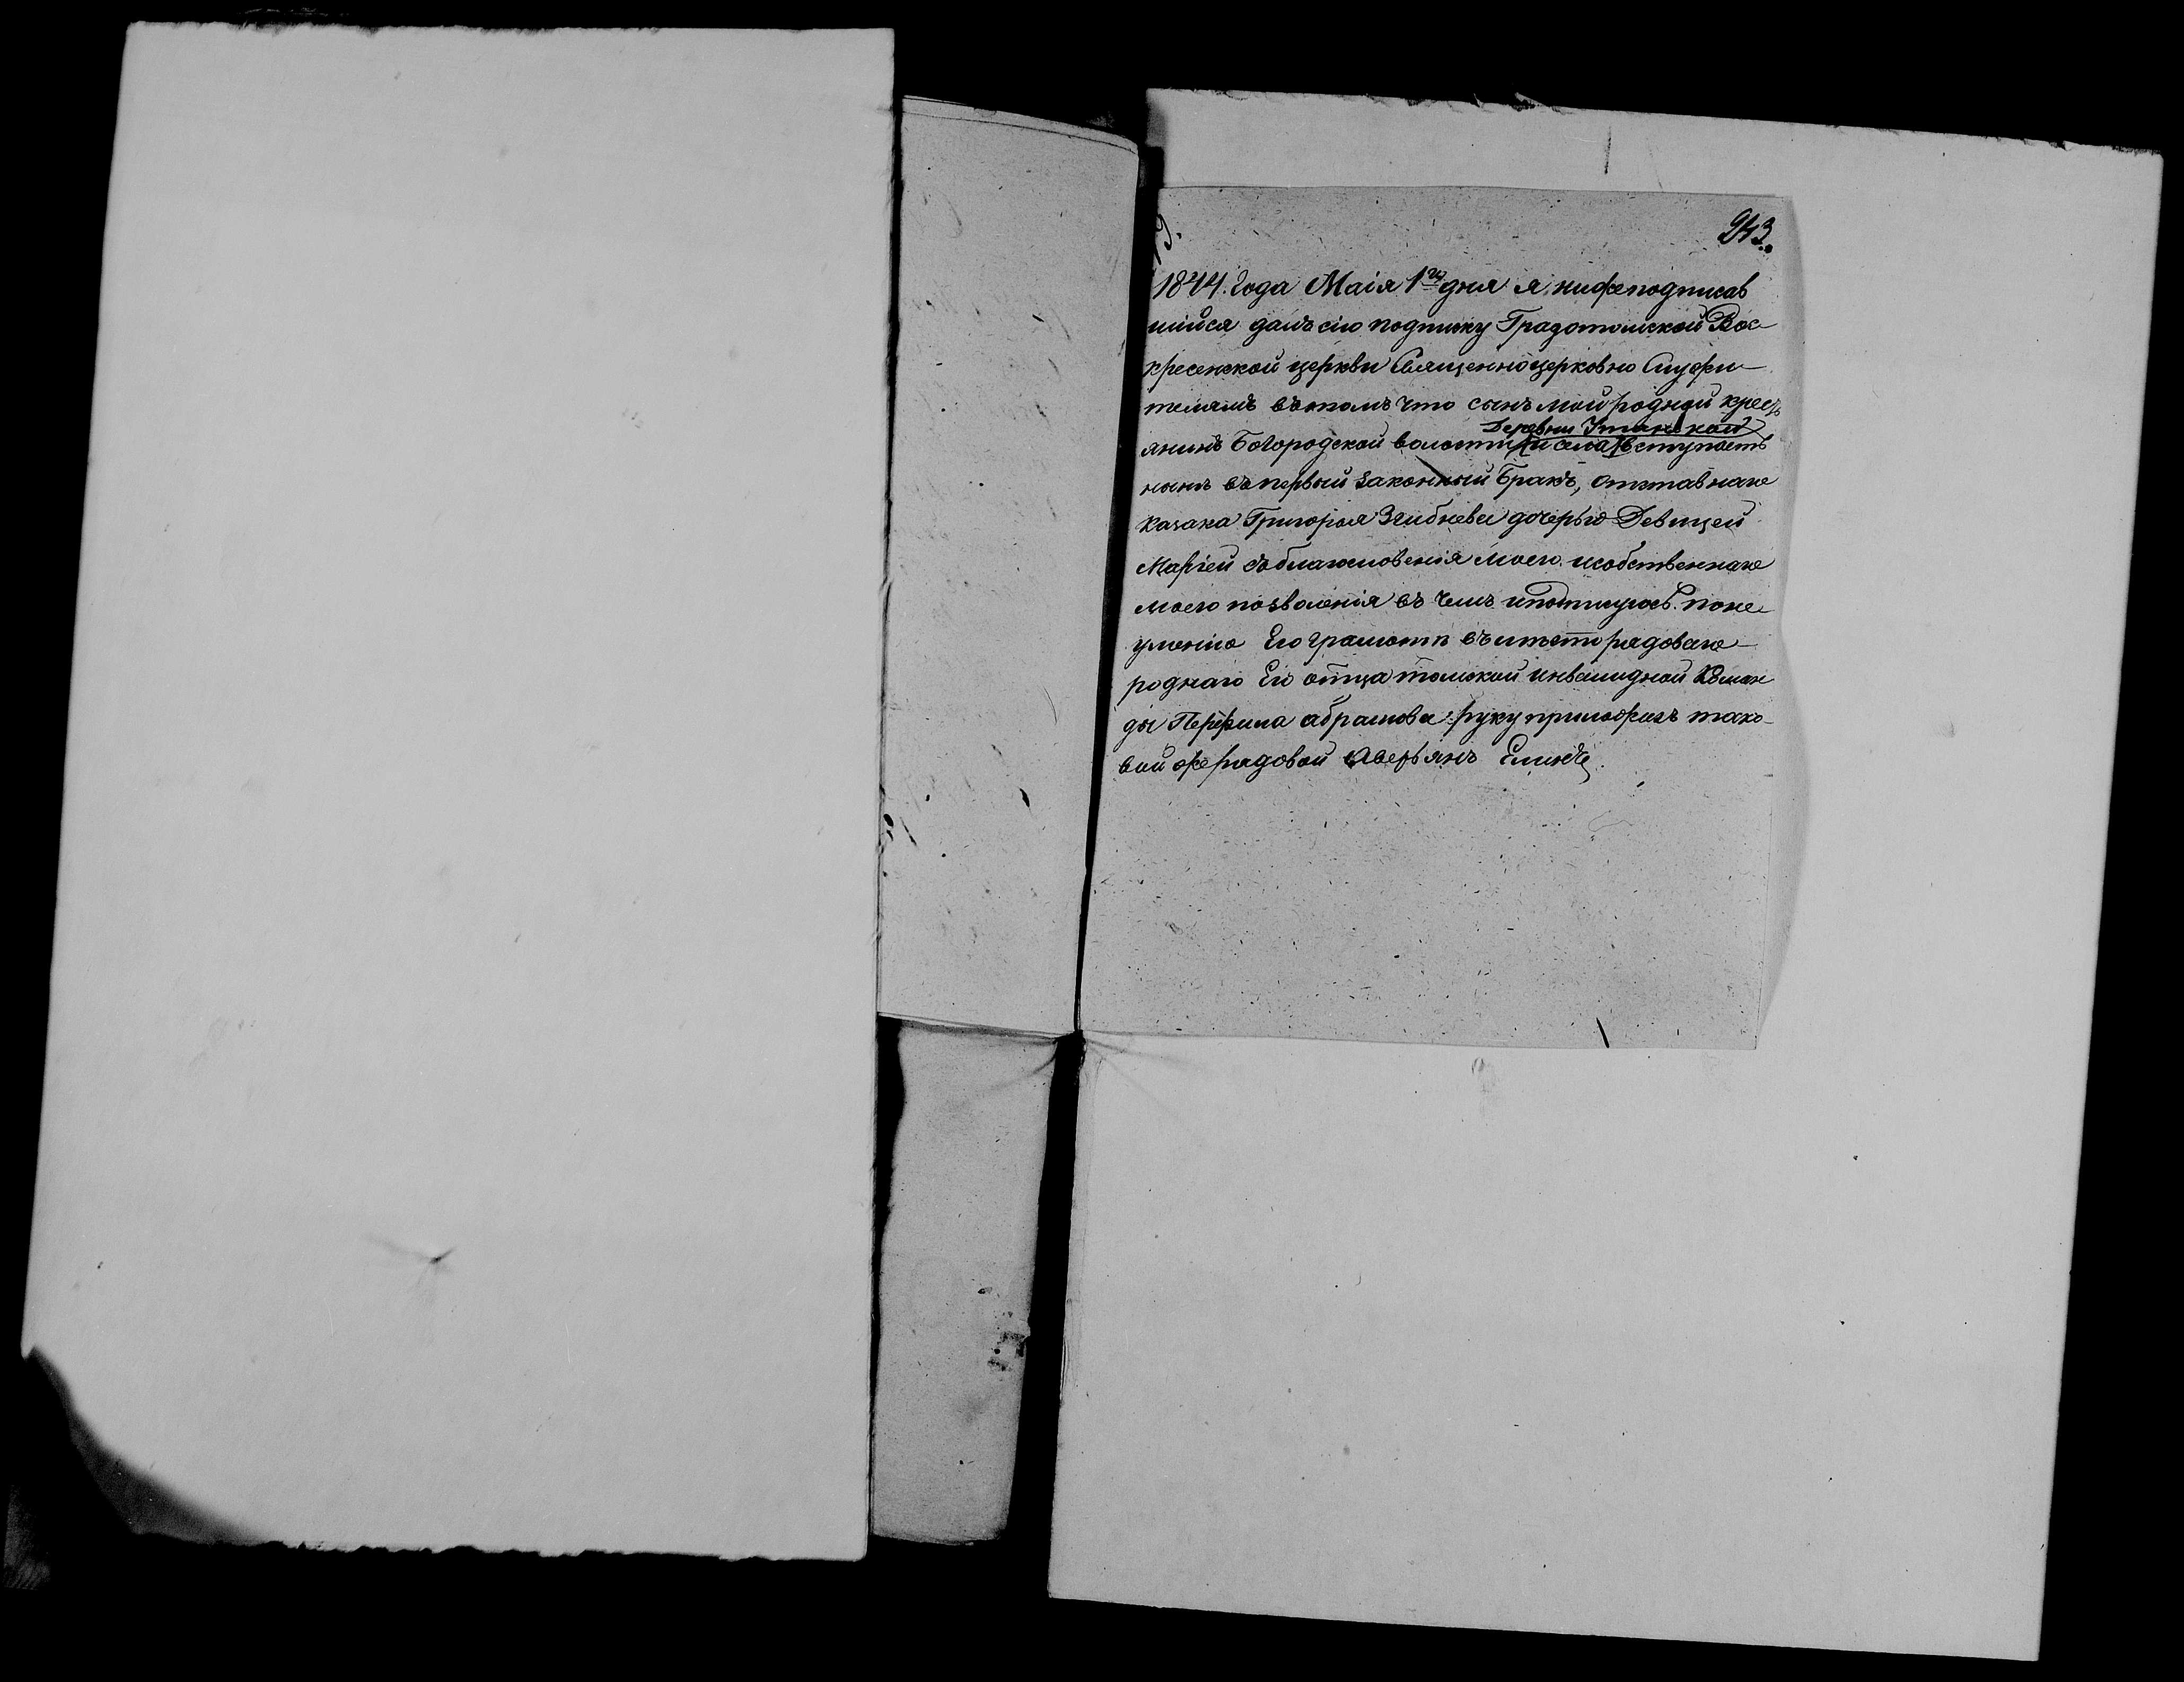 243.
1844. года Маія 1го дня я нижеподписав
шійся далъ сію подписку Градотомской Вос
кресенской церкви Священноцерковно Служи
телямъ въ томъ что сынъ мой родной кресть
янинъ Богородской волости и села вступаетъ
Деревни
нынѣ въ первый законный Бракъ, отставнаго
казака Григорья Згибнева дочерью Девицей
Маріей съ благословенія моего и собственнаго
моего позволенія въ чемъ и подписуюсь. поне
уменію Его грамотѣ въ мѣсто рядоваго
роднаго Его отца томской инвалидной Коман
ды Перфила абрамова руку приложилъ тако
вой же рядовой Аверьянъ